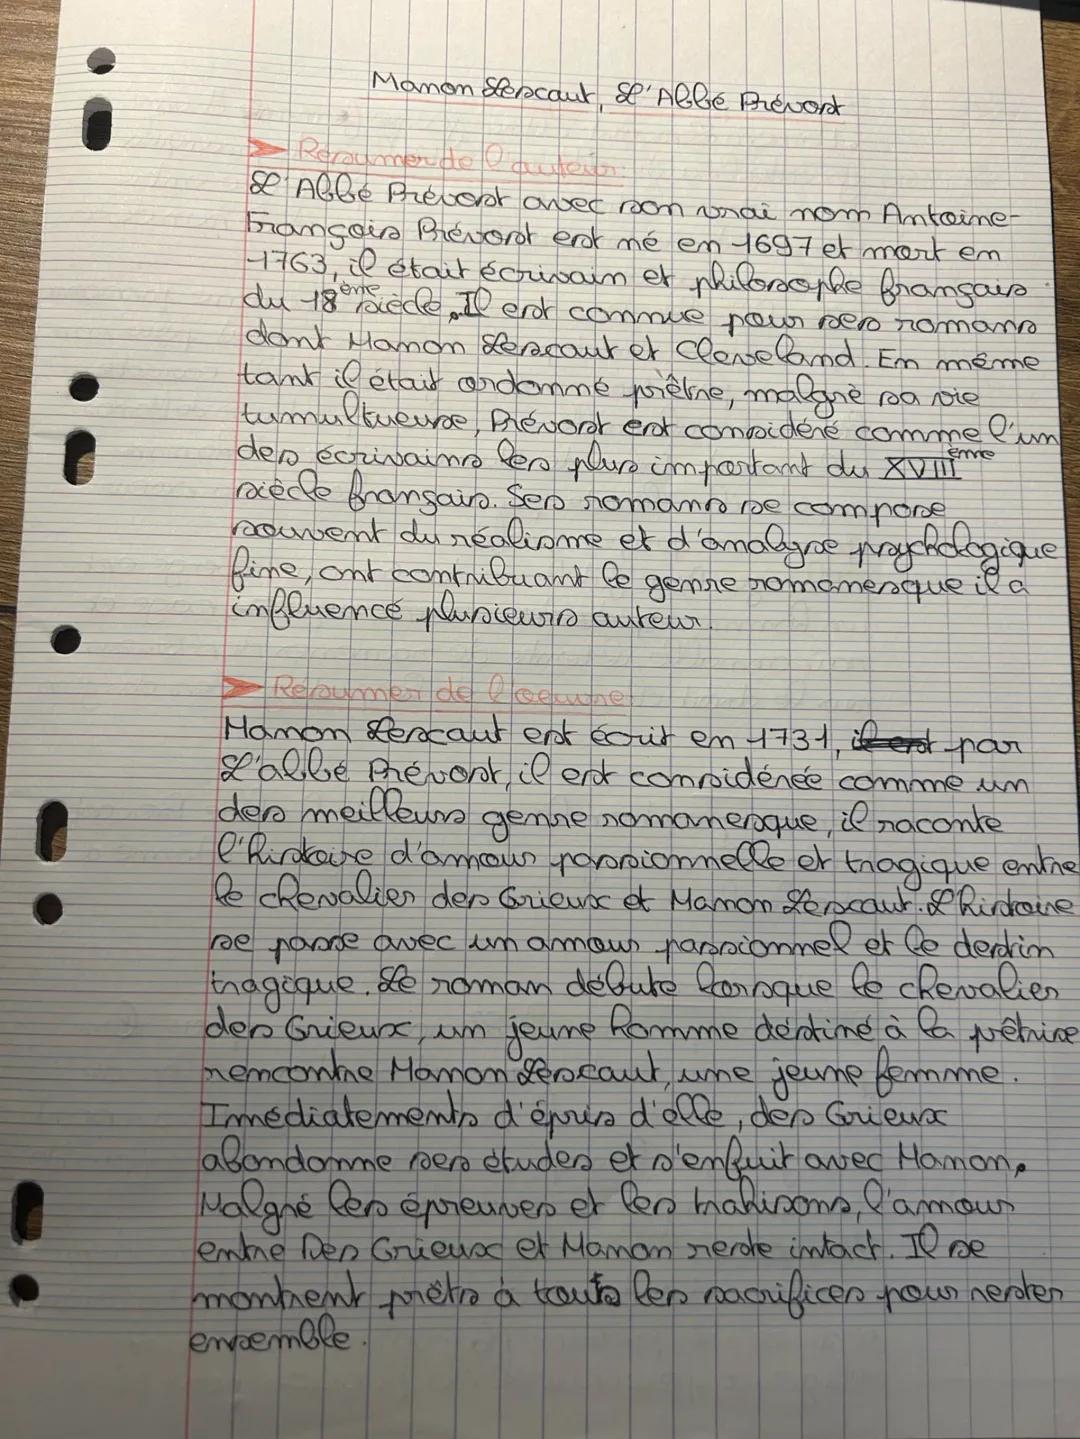 Manon Lescaut, L'Abbé Prévost
Résumer de l'auteur:
L'Abbé Prévost avec son vrai nom Antoine-
François Prévost est né en 1697 et mort en
1763, il était écrivain et philosophe français
du 18ème siècle. Il est connue pour ses romans
dont Manon Lescaut et Cleveland. En même
tant il était ordonné prêtre, malgré sa vie
tumultueuse, Prévost est considéré comme l'un
des écrivains les plus important du XVIIIème
siècle français. Ses romans se compose
souvent du réalisme et d'analyse psychologique
fine, ont contribuant le genre romanesque il a
influencé plusieurs auteur.
Résumer de l'oeuvre:
Manon Lescaut est écrit en 1731, il est par
L'abbé Prévost, il est considérée comme un
des meilleurs genre romanesque, il raconte
l'histoire d'amour passionnelle et tragique entre
le chevalier des Grieux et Manon Lescaut. L'histoire
se passe avec un amour passionnel et le destin
tragique. Le roman débute lorsque le chevalier
des Grieux, un jeune homme déstiné à la prêtrise
rencontre Manon Lescaut, une jeune femme.
Immédiatements d'épris d'elle, des Grieux
abandonne ses études et s'enfuit avec Manon.
Malgré les épreuves et les trahisons, l'amour
entre Des Grieux et Manon reste intact. Il se
montrent prêts à touts les sacrifices pour rester
ensemble.